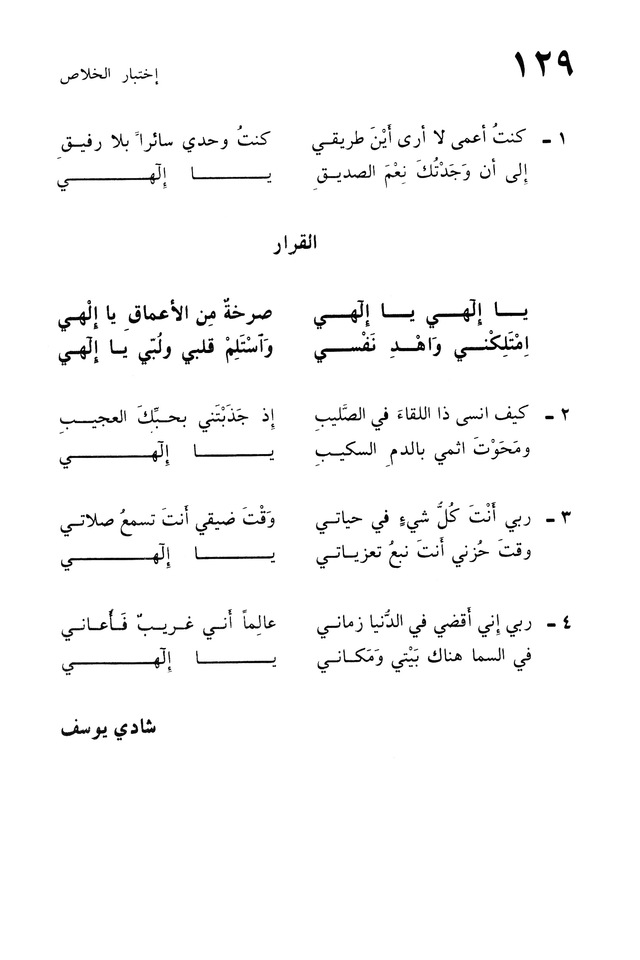 ١٢٩
إختبار الخلاص
١ - كنتُ أعمى لا أرى أَيْنَ طريقي كنتُ وحدي سائراً بلا رفيقِ
إلى أن وَجَدْتُكَ نِعْمَ الصديقِ يا إلٓهي
القرار
يا إلٓهي يا إلٓهي صرخةٌ مِن الأعماقِ يا إلٓهي
اِمْتَلِكْني وَاهْدِ نَفْسي وَٱسْتَلِمْ قلبي ولُبّي يا إلٓهي
٢ - كيف انسى ذا اللقاءَ في الصَّليبِ إذ جَذَبْتَني بحبِّكَ العجيبِ
ومَحَوْتَ اثمي بالدمِ السكيبِ يا إلٓهي
٣ - ربي أَنْتَ كُلُّ شيءٍ في حياتي وَقْتَ ضيقي أنتَ تسمعُ صلاتي
وقتَ حُزني أنتَ نبعُ تعزياتي يا إلٓهي
٤ - ربي إني أقضي في الدُّنيا زماني عالِماً أَني غريبٌ فَأُعاني
في السما هناك بَيْتي وَمَكاني يا إلٓهي
شادي يوسف